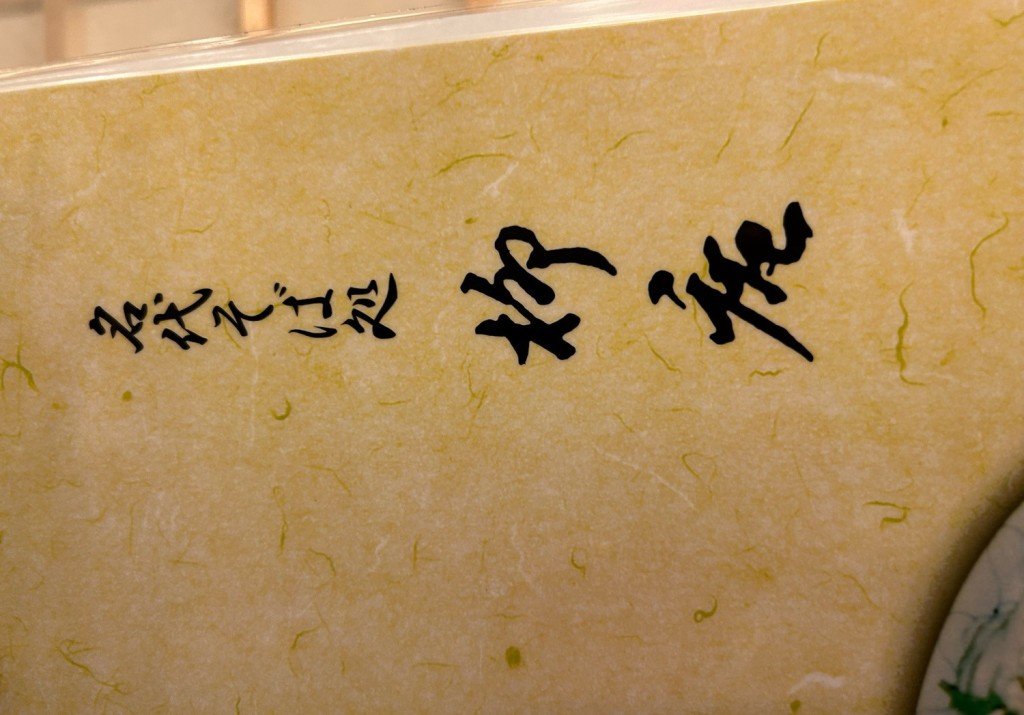 名代そば処 柳庵